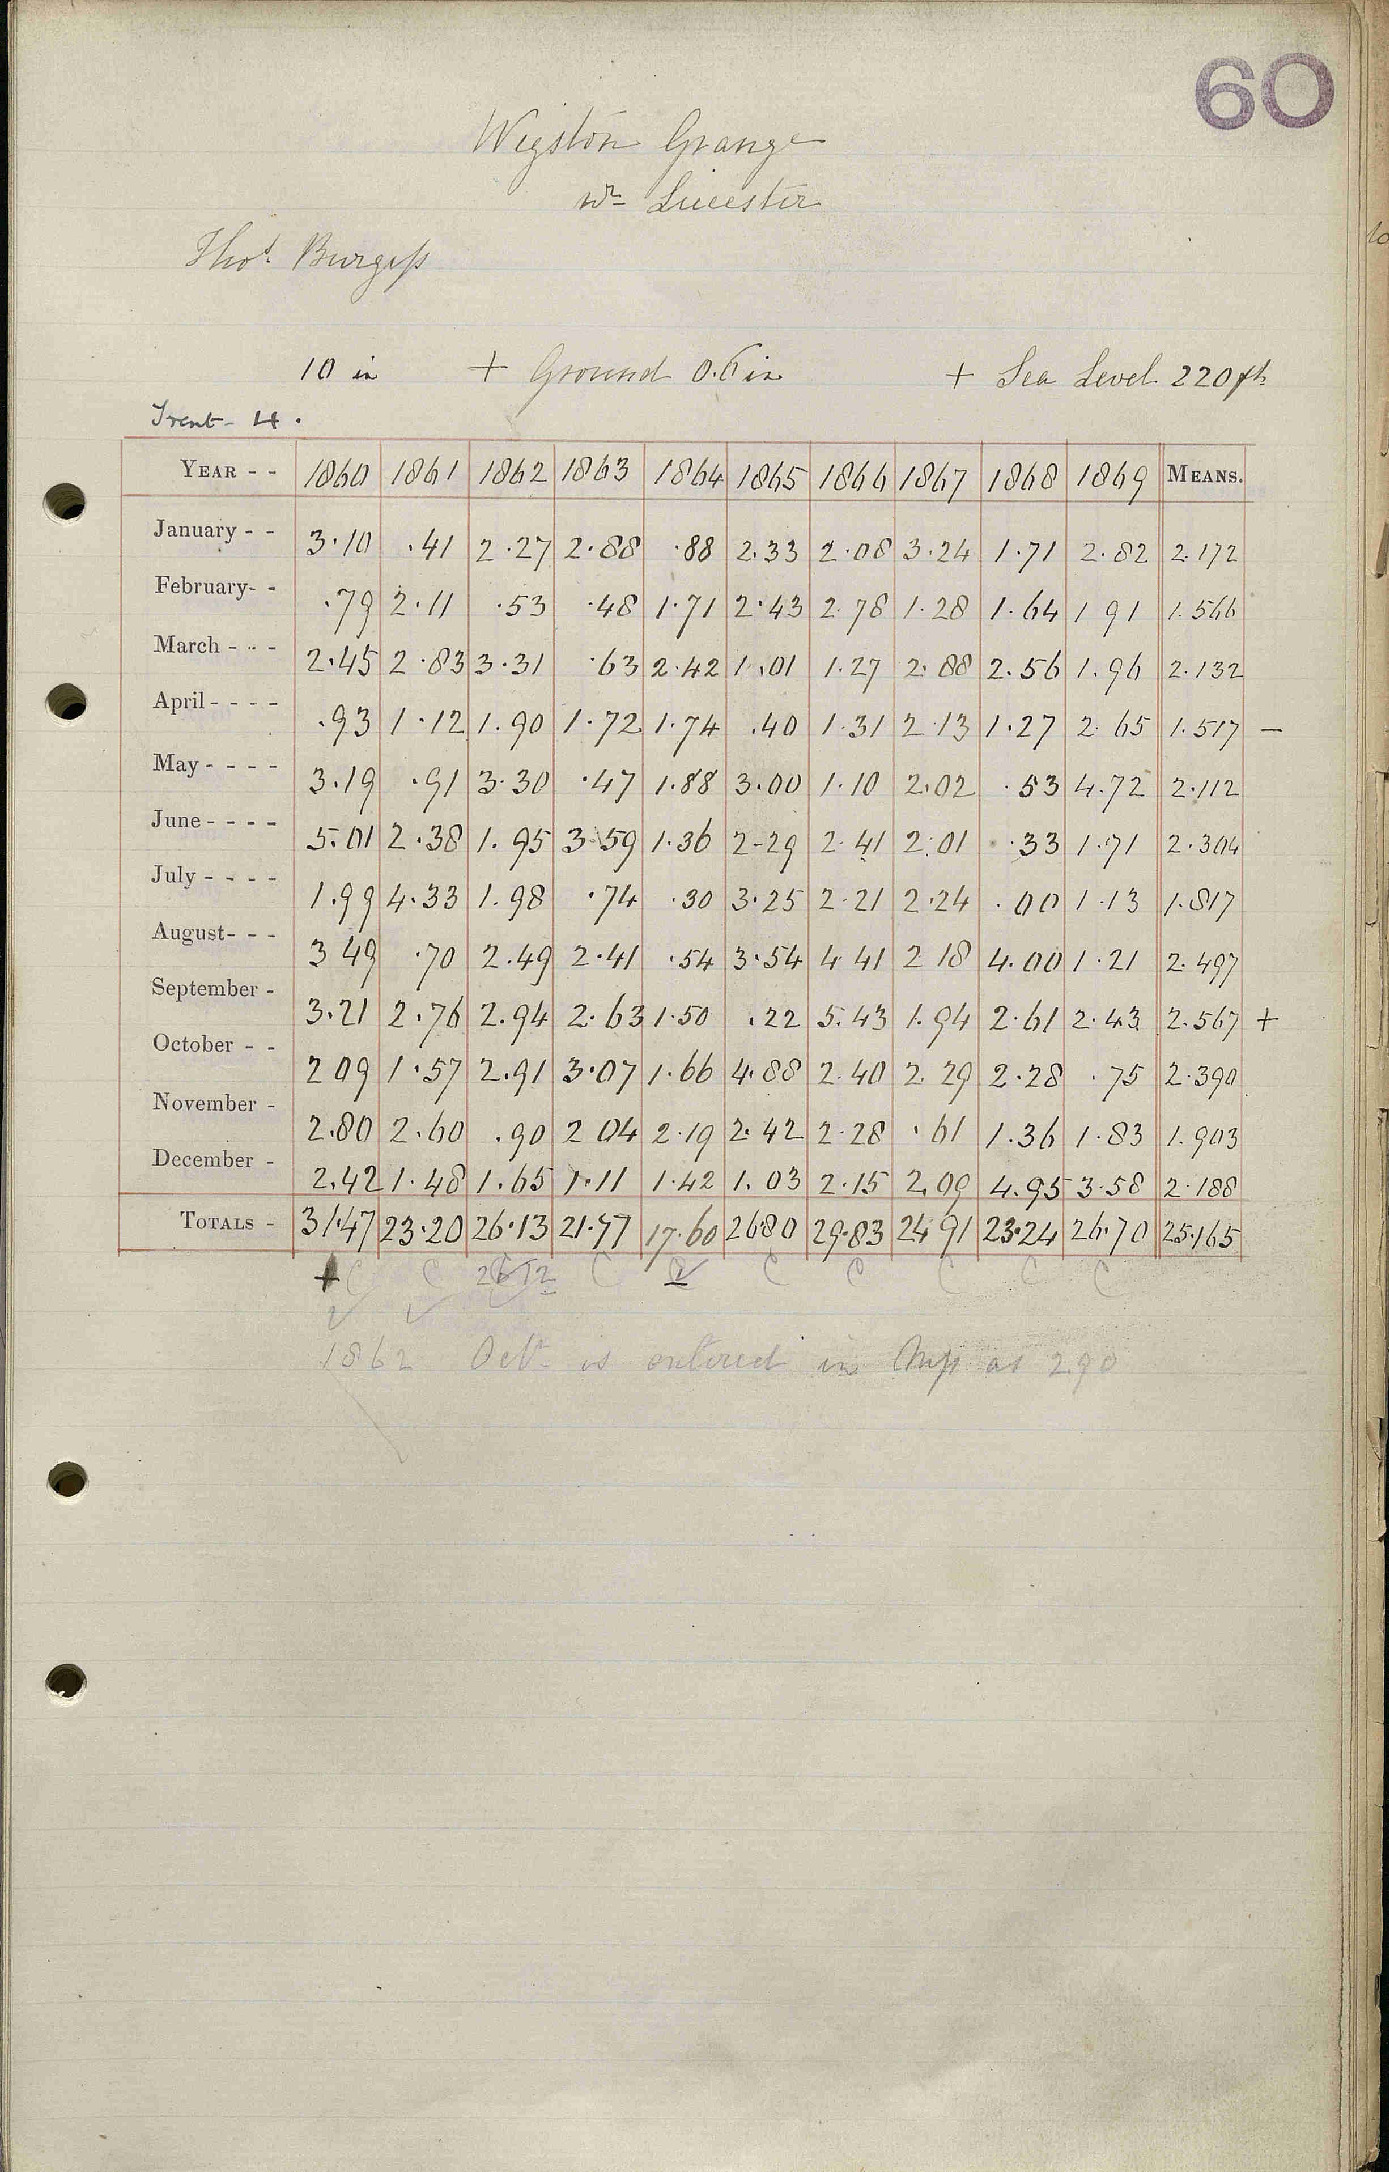 60
Wigston Grange
Nr Leicester
Thos Burgess
10 in + Ground 0.6 in + Sea Level 220 ft
Trent - 4.
YEAR - - 1860 1861 1862 1863 1864 1865 1866 1867 1868 1869 MEANS.
January - - 3.10 .41 2.27 2.88 .88 2.33 2.08 3.24 1.71 2.82 2.172
February - - .79 2.11 .53 .48 1.71 2.43 2.78 1.28 1.64 1 91 1.566
March - - - 2.45 2.83 3.31 .63 2.42 1.01 1.27 2.88 2.56 1.96 2.132
April - - - - .93 1.12 1.90 1.72 1.74 .40 1.31 2.13 1.27 2.65 1.517 —
May - - - - 3.19 .91 3.30 .47 1.88 3.00 1.10 2.02 .53 4.72 2.112
June - - - - 5.01 2.38 1.95 3.59 1.36 2-29 2.41 2.01 .33 1.71 2.304
July - - - - 1.99 4.33 1.98 .74 .30 3.25 2.21 2.24 .00 1.13 1.817
August - - - 3 49 .70 2.49 2.41 .54 3.54 4 41 2 18 4.00 1.21 2.497
September - 3.21 2.76 2.94 2.63 1.50 .22 5.43 1.94 2.61 2.43 2.567 +
October - - 2 09 1.57 2.91 3.07 1.66 4.88 2.40 2.29 2.28 .75 2.390
November - 2.80 2.60 .90 2 04 2.19 2.42 2.28 .61 1.36 1.83 1.903
December - 2.42 1.48 1.65 1.11 1.42 1.03 2.15 2.09 4.95 3.58 2.188
TOTALS - 31.47 23.20 26.13 21.77 17.60 26.80 29.83 24 91 23.24 26.70 25.165
+ C C C C C C C C
1862 Oct. is entered in as 2.90